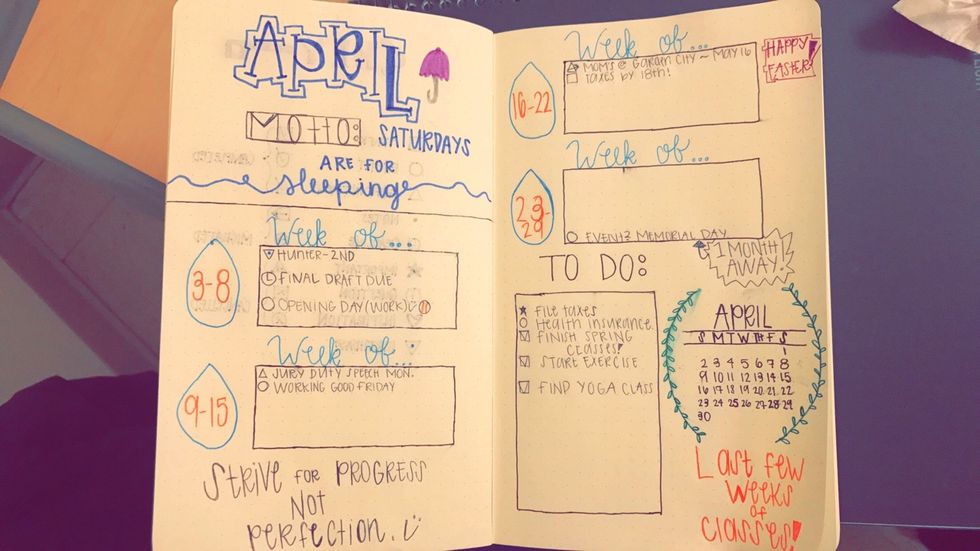 APRIL
MOTTO: SATURDAYS
ARE FOR
sleeping
Week of...
3-8
HUNTER-2ND
FINAL DRAFT DUE
OPENING DAY(WORK)
Week of...
9-15
JURY DUTY SPEECH MON.
WORKING GOOD FRIDAY
STRIVE FOR PROGRESS
NOT
perfection.
Week of...
HAPPY
EASTER!
16-22
MOMS @ GARDEN CITY ~ MAY 16
TAXES BY 18th!
Week of...
23-
29
EVENTS MEMORIAL DAY
1 MONTH
AWAY!
TO DO:
FILE TAXES
Health insurance
FINISH SPRING
CLASSES!
START EXERCISE
FIND YOGA CLASS
APRIL
S M T W TH F S
1
2 3 4 5 6 7 8
9 10 11 12 13 14 15
16 17 18 19 20 21 22
23 24 25 26 27 28 29
30
Last few
weeks
of
classes!